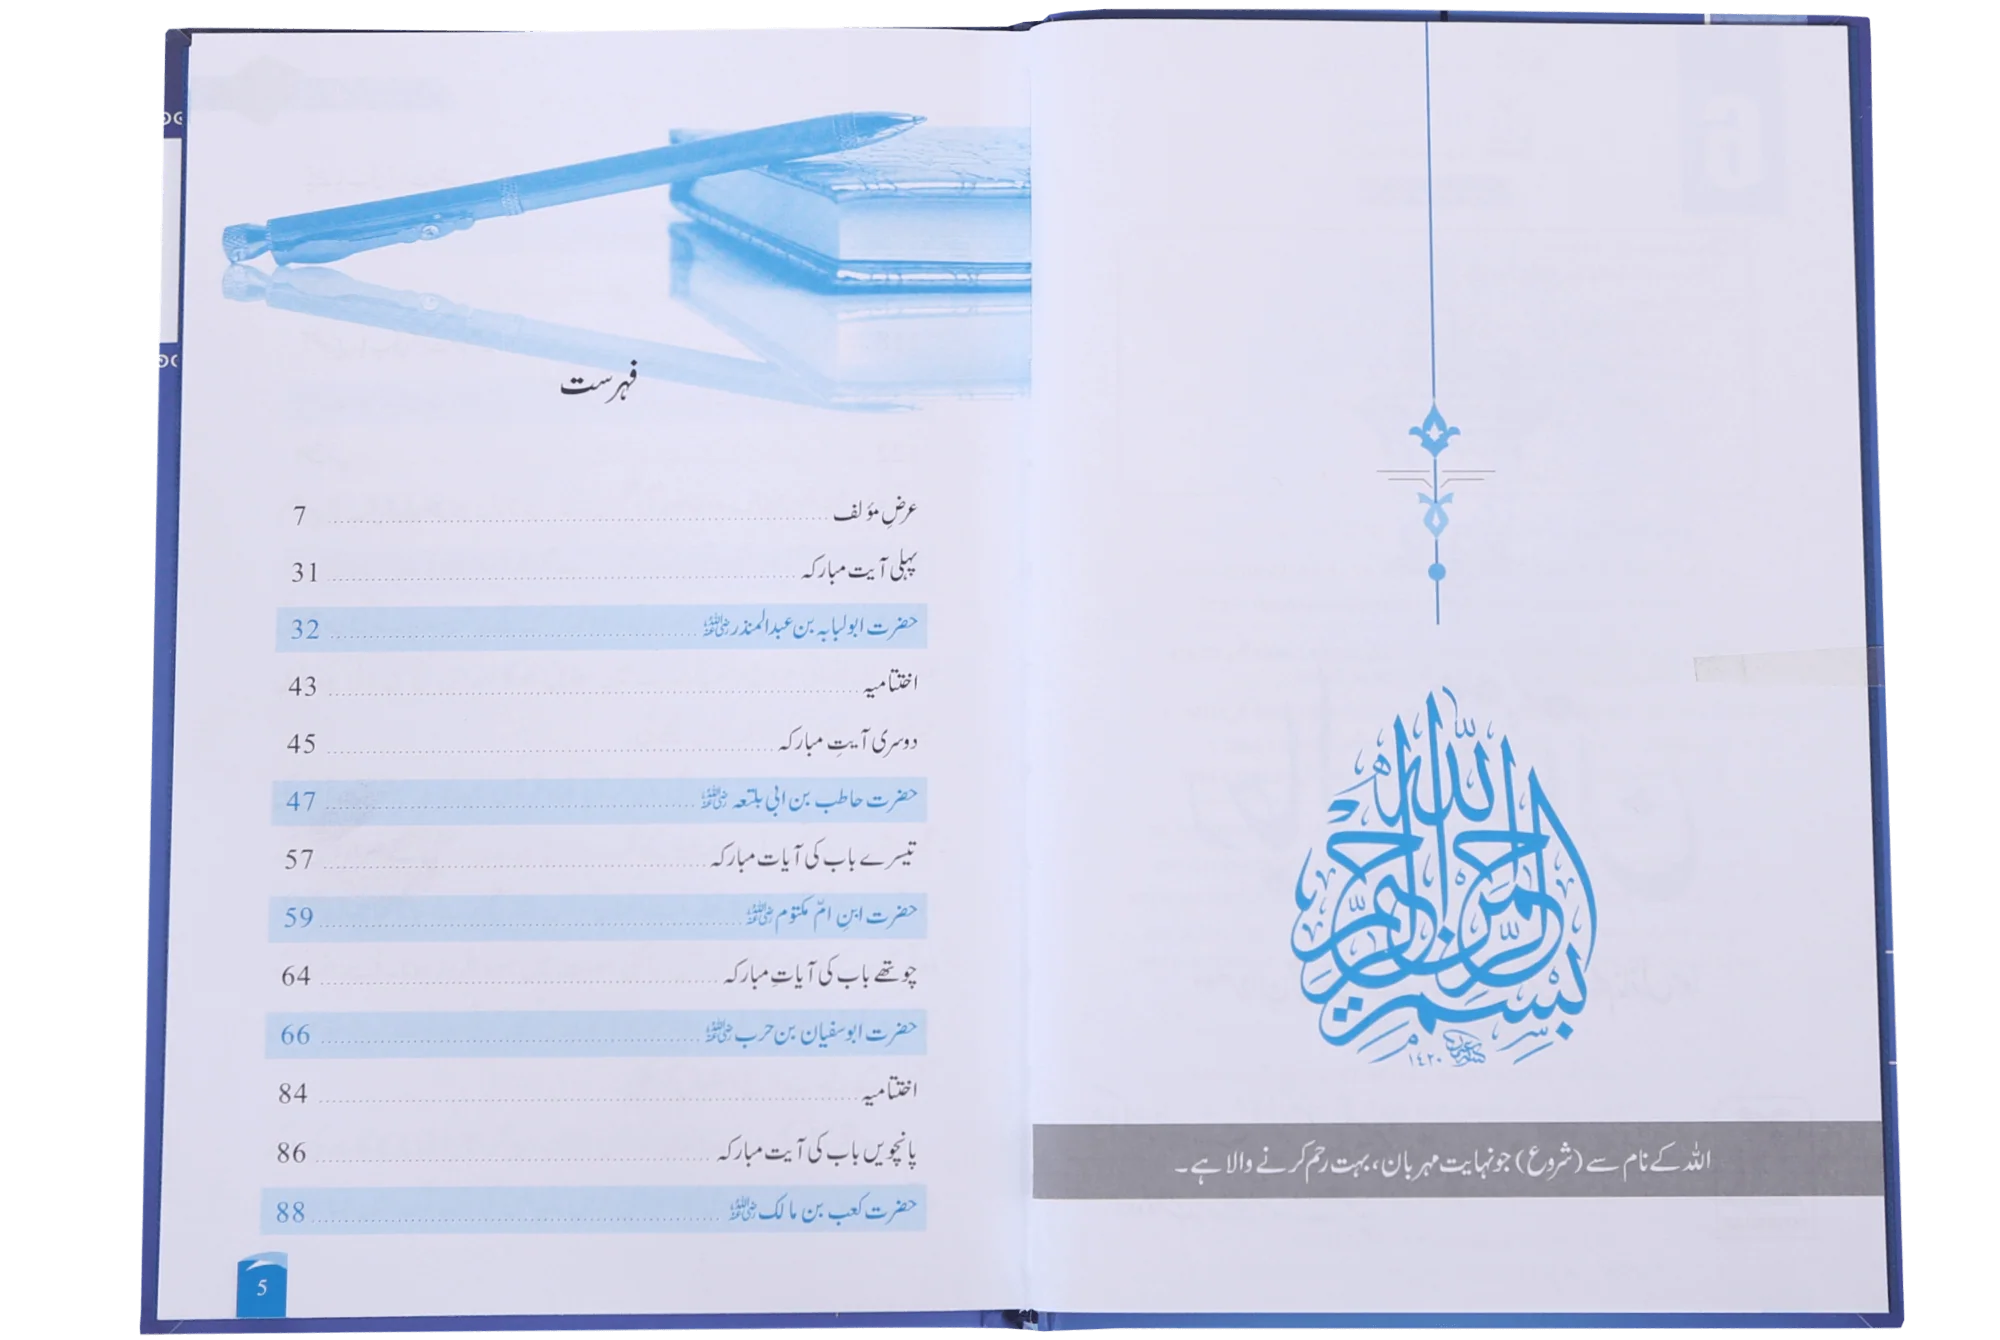 بسم الله الرحمن الرحيم
١٤٢٠
اللہ کے نام سے (شروع) جو نہایت مہربان، بہت رحم کرنے والا ہے۔
فہرست
عرضِ مؤلف ........ 7
پہلی آیت مبارکہ ........ 31
حضرت ابولبابہ بن عبدالمنذر رضی اللہ عنہ ........ 32
اختتامیہ ........ 43
دوسری آیتِ مبارکہ ........ 45
حضرت حاطب بن ابی بلتعہ رضی اللہ عنہ ........ 47
تیسرے باب کی آیات مبارکہ ........ 57
حضرت ابنِ امّ مکتوم رضی اللہ عنہ ........ 59
چوتھے باب کی آیاتِ مبارکہ ........ 64
حضرت ابوسفیان بن حرب رضی اللہ عنہ ........ 66
اختتامیہ ........ 84
پانچویں باب کی آیت مبارکہ ........ 86
حضرت کعب بن مالک رضی اللہ عنہ ........ 88
5